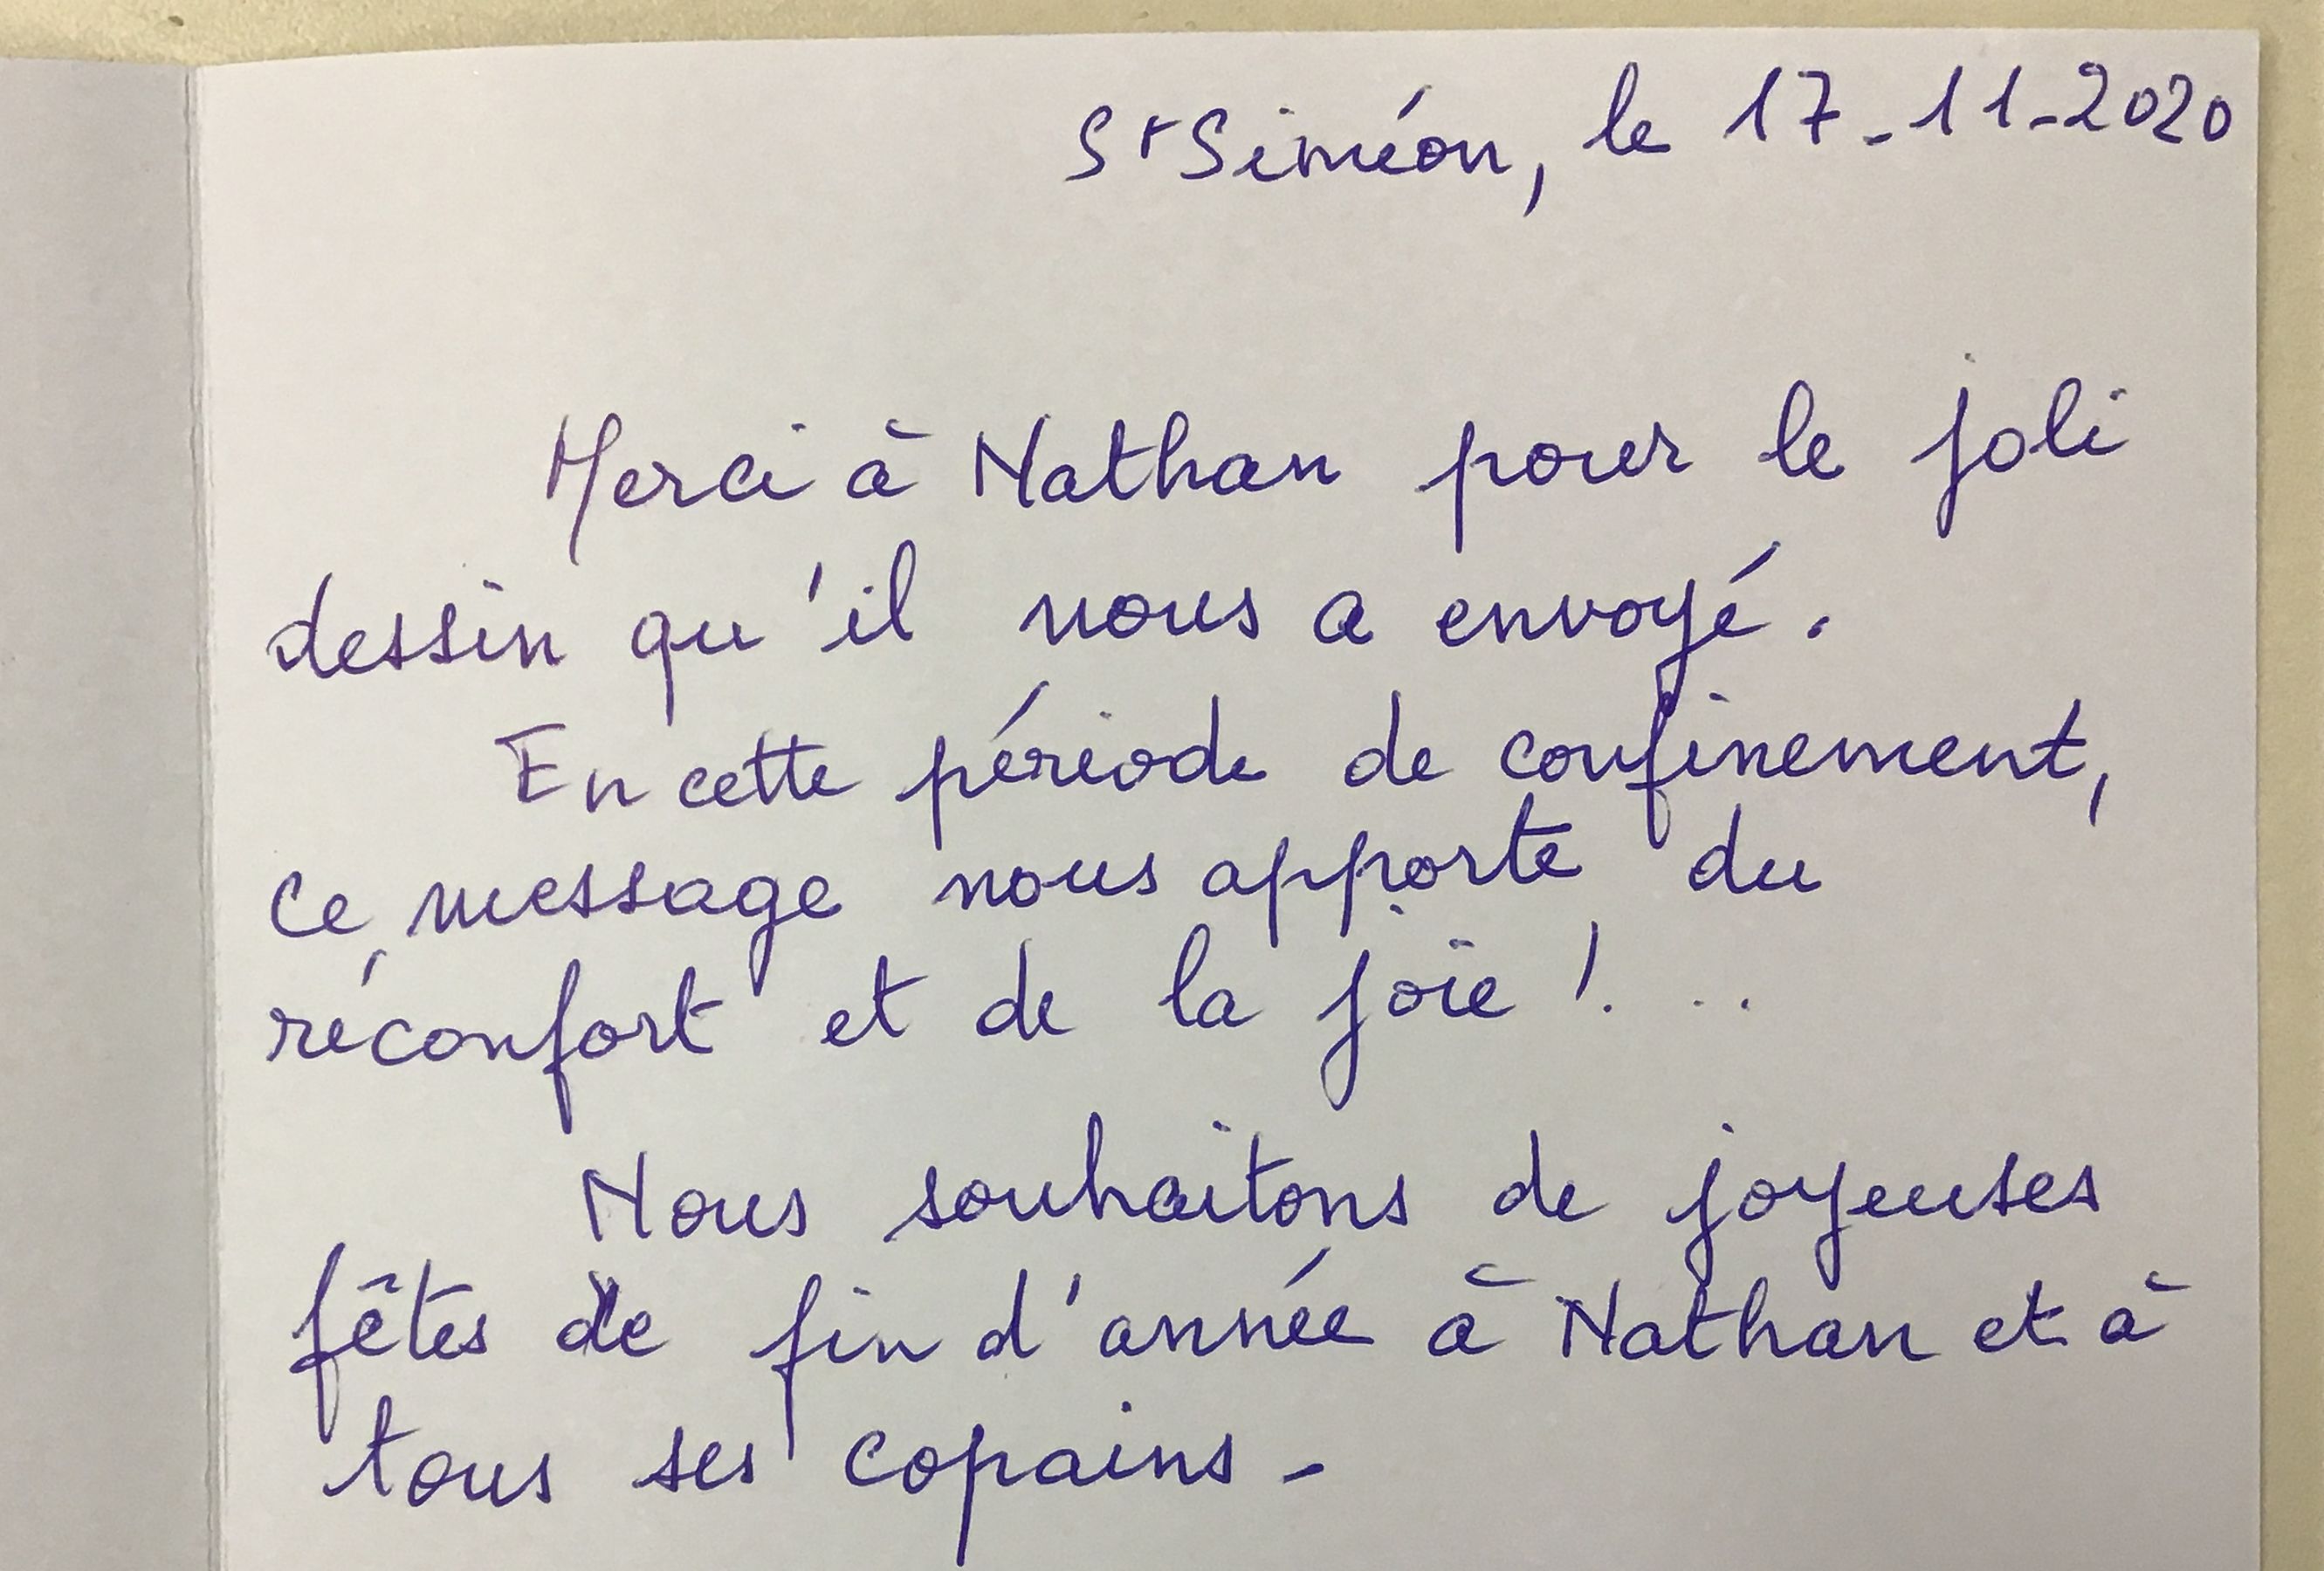 St Siméon, le 17-11-2020
Merci à Nathan pour le joli
dessin qu'il nous a envoyé.
En cette période de confinement,
ce message nous apporte du
réconfort et de la joie !...
Nous souhaitons de joyeuses
fêtes de fin d'année à Nathan et à
tous ses copains -